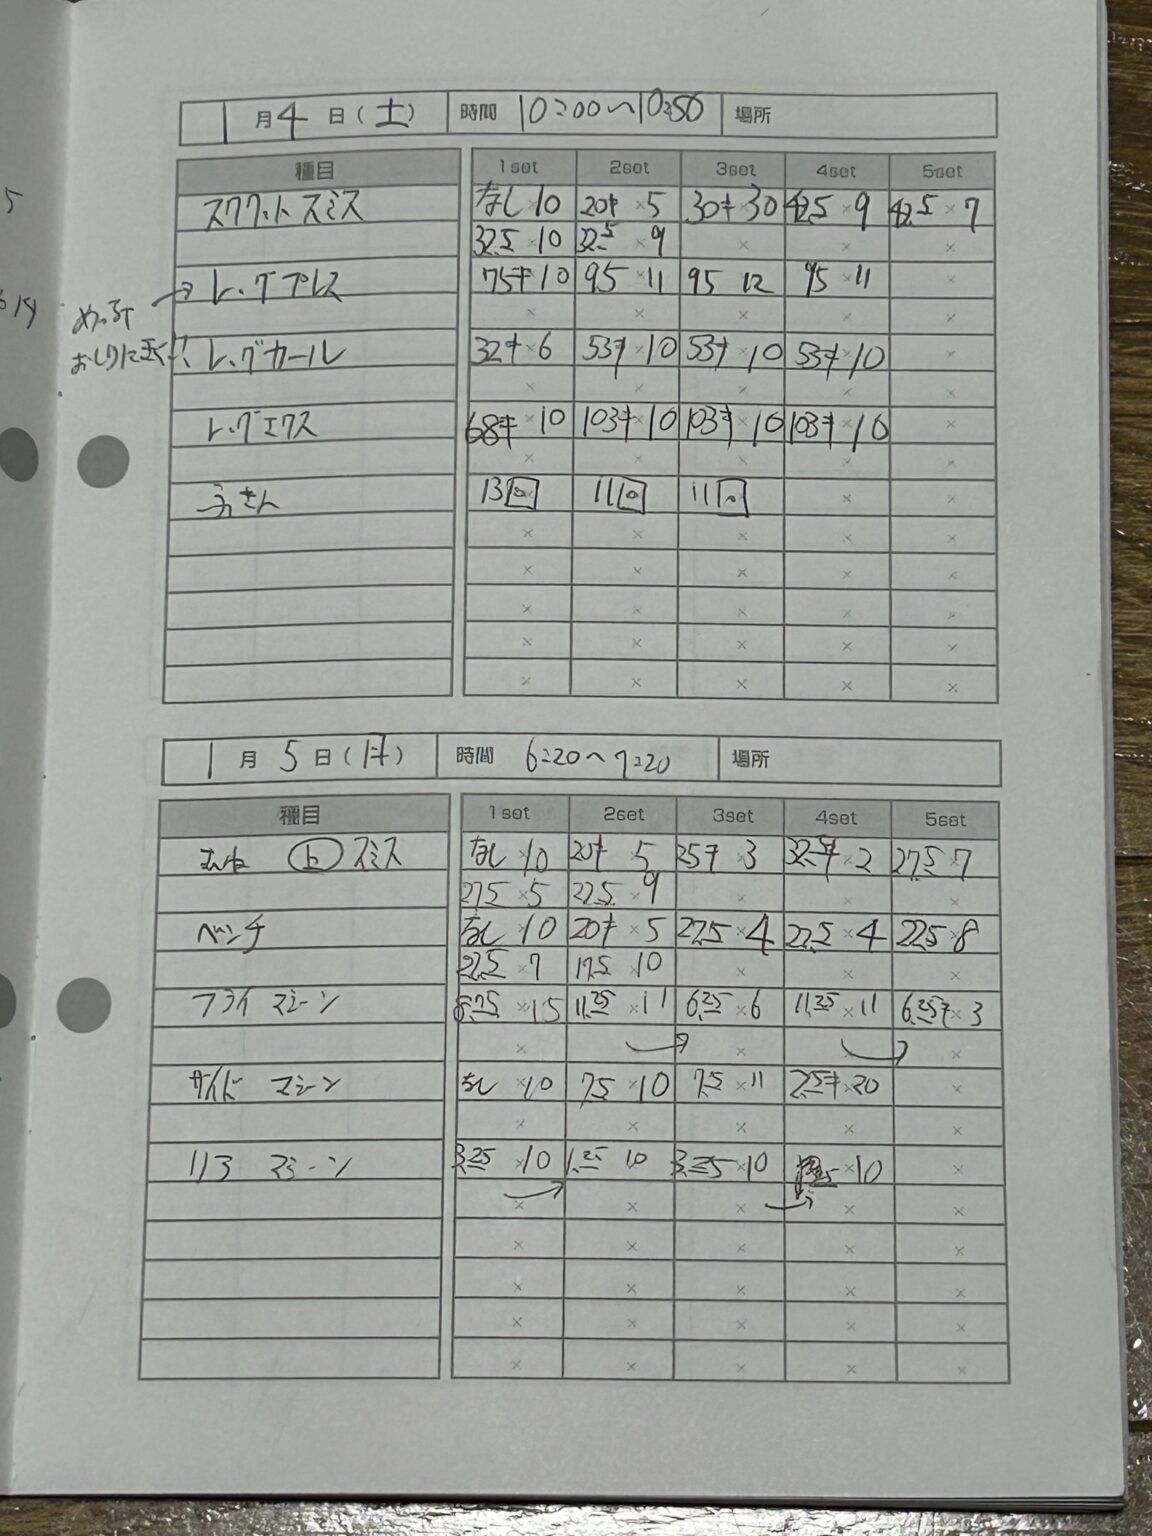 1月4日(土) 時間 10:00〜10:50 場所
種目 1set 2set 3set 4set 5set
スクワット スミス なし×10 20キ×5 30キ×30 42.5×9 42.5×7
32.5×10 32.5×9 × × ×
レッグプレス 75キ×10 95×11 95 12 95×11 ×
× × × × ×
おしりに
レッグカール 32キ×6 53キ×10 53キ×10 53キ×10 ×
× × × × ×
レッグエクス 68キ×10 103キ×10 103キ×10 103キ×10 ×
× × × × ×
13回 11回 11回 × ×
× × × × ×
× × × × ×
× × × × ×
× × × × ×
× × × × ×
1月5日( ) 時間 6:20〜7:20 場所
種目 1set 2set 3set 4set 5set
むね 上 スミス なし×10 20キ 5 25キ×3 32.5キ×2 27.5×7
27.5×5 22.5×9 × × ×
ベンチ なし×10 20キ×5 27.5×4 27.5×4 22.5×8
22.5×7 17.5×10 × × ×
フライ マシーン 8.75×15 11.25×11 6.25×6 11.25×11 6.25キ×3
× × ×
サイド マシーン なし×10 7.5×10 7.5×11 2.5キ×20 ×
× × × × ×
リア マシーン 3.25×10 1.25 10 3.25×10 ×10 ×
× × × × ×
× × × × ×
× × × × ×
× × × × ×
× × × × ×